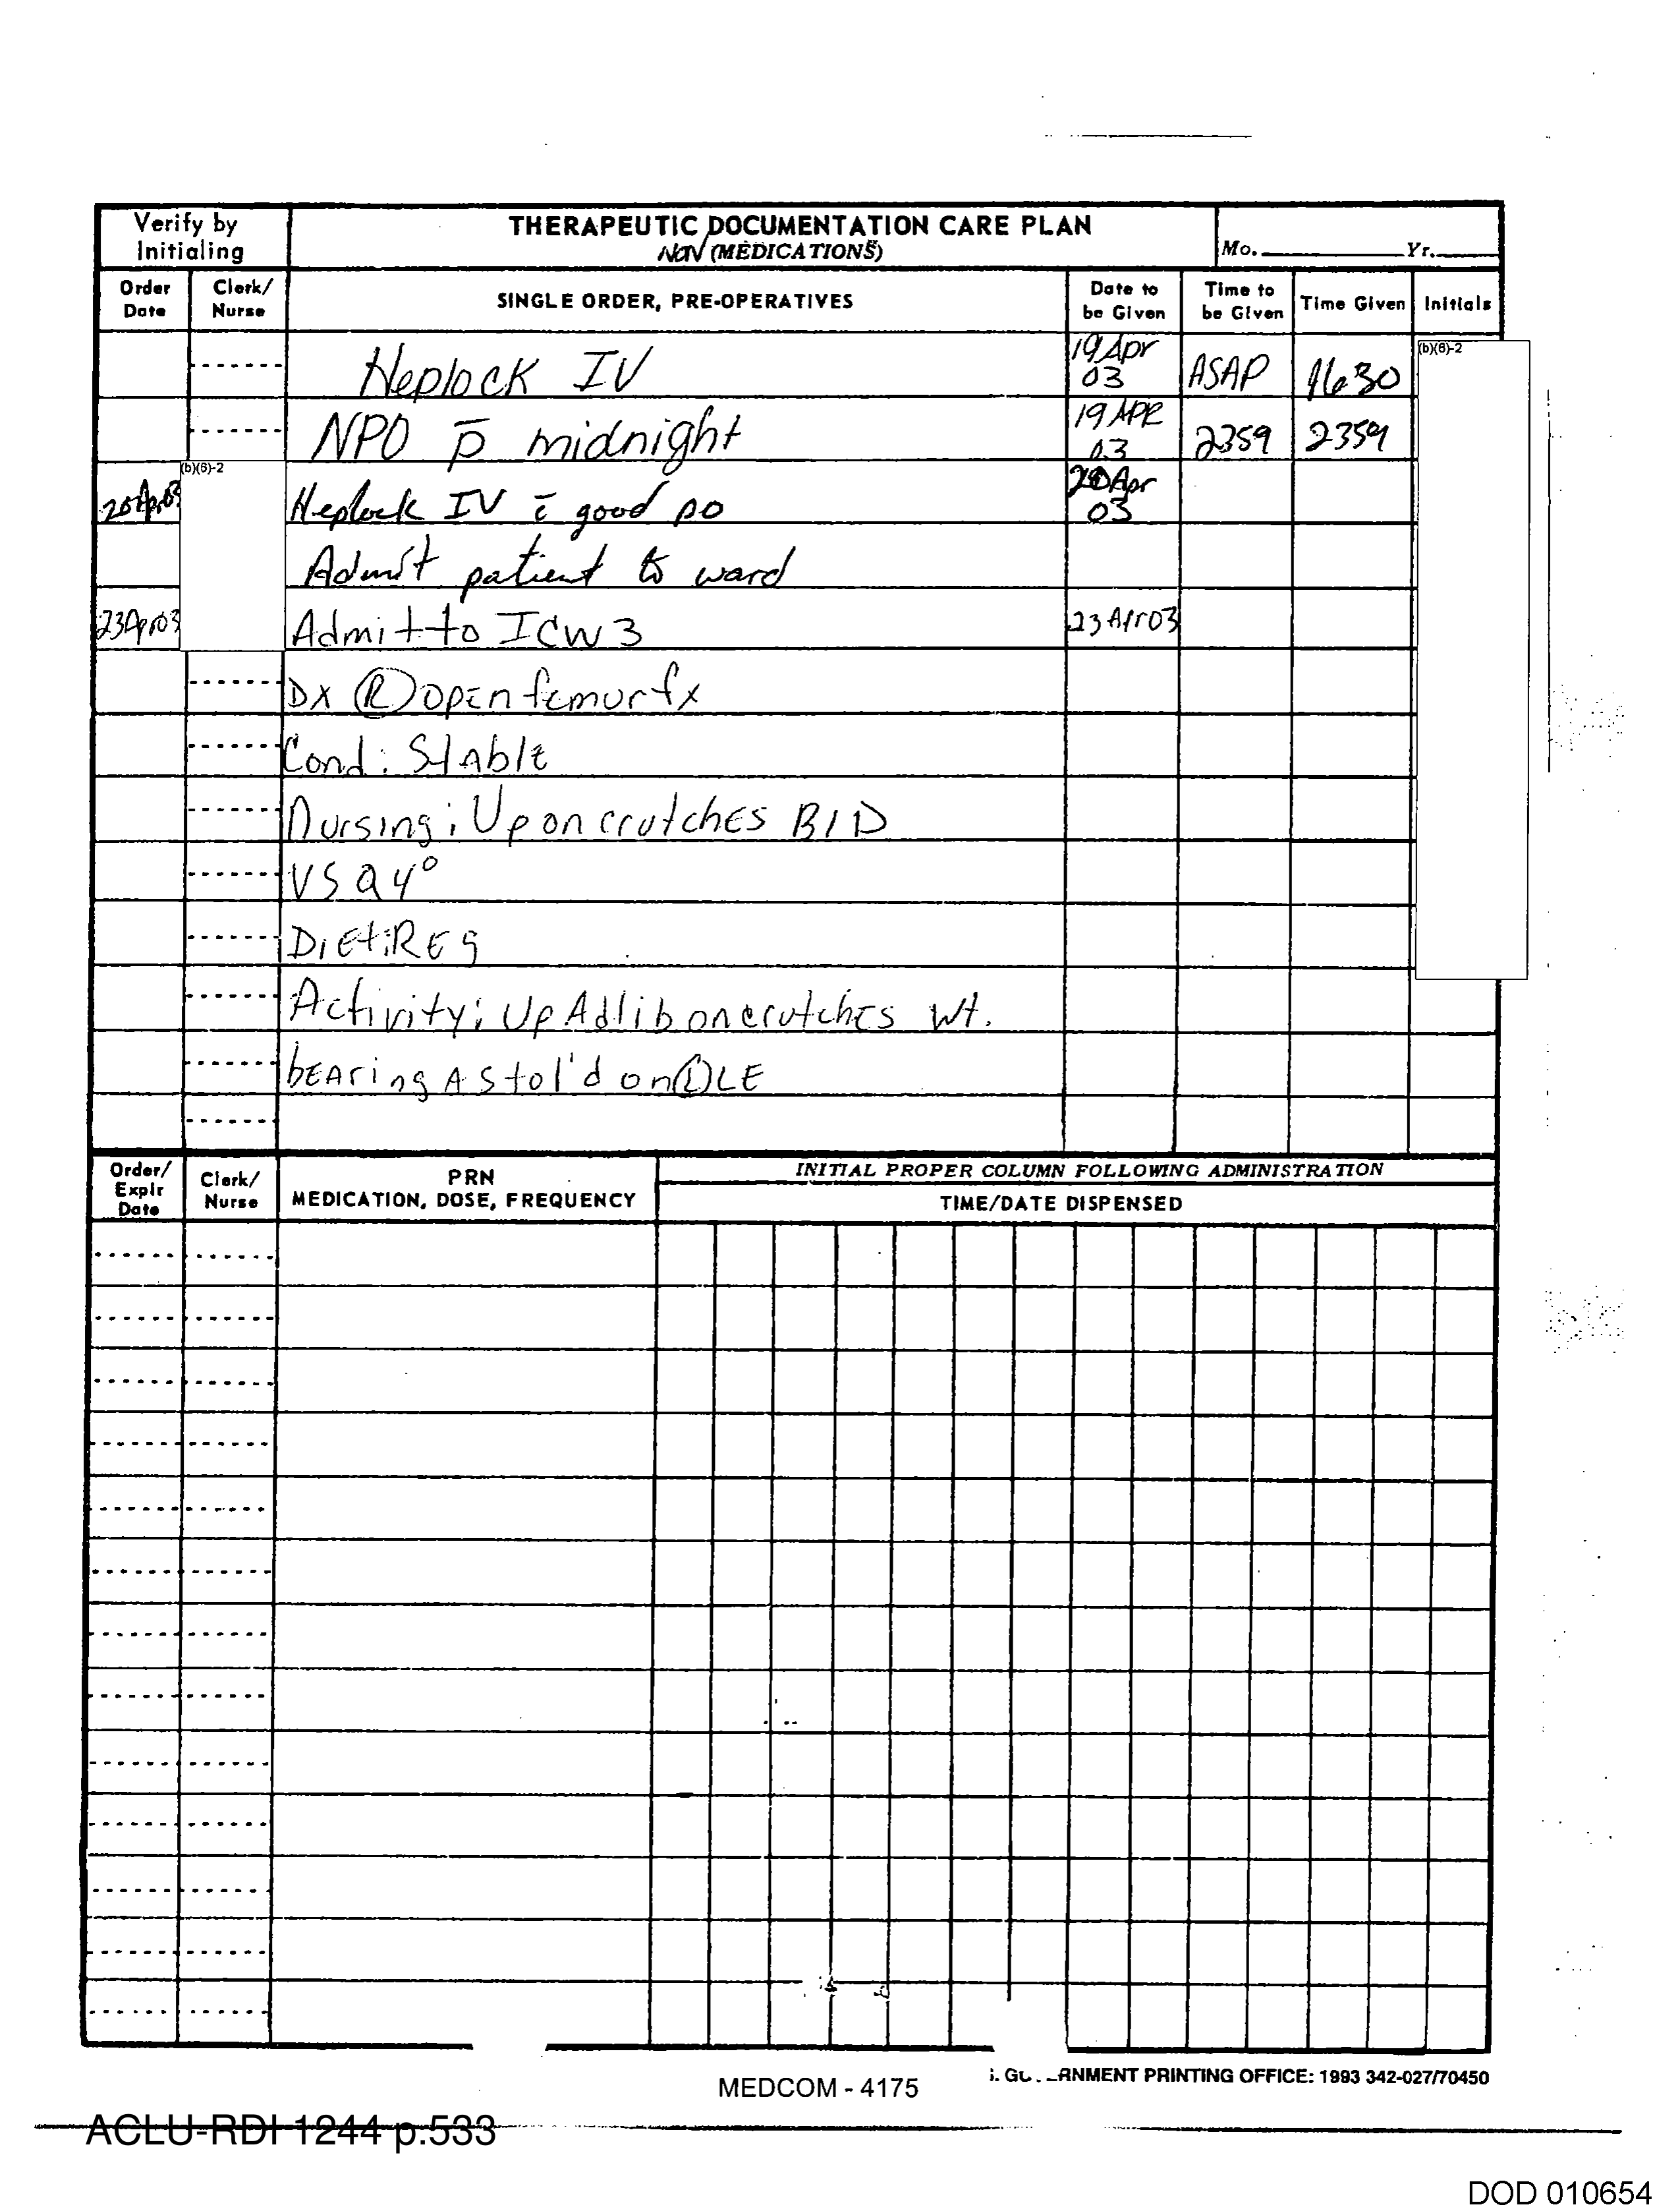 Verify by Initialing
THERAPEUTIC DOCUMENTATION CARE PLAN
NON (MEDICATIONS)
Mo. Yr.
Order Date
Clerk/ Nurse
SINGLE ORDER, PRE-OPERATIVES
Date to be Given
Time to be Given
Time Given
Initials
Heplock IV 19 Apr 03 ASAP 1630
(b)(6)-2
NPO p̄ midnight 19 APR 03 2359 2359
(b)(6)-2
20 Apr 03 Heplock IV c̄ good po 20 Apr 03
Admit patient to ward
23 Apr 03 Admit to ICW 3 23 Apr 03
DX Ⓡ open femur fx
Cond: Stable
Nursing: Up on crutches BID
VS Q4°
Diet: Reg
Activity: Up Adlib on crutches Wt.
bearing As tol'd on Ⓛ LE
Order/ Expir Date
Clerk/ Nurse
PRN
MEDICATION, DOSE, FREQUENCY
INITIAL PROPER COLUMN FOLLOWING ADMINISTRATION
TIME/DATE DISPENSED
RNMENT PRINTING OFFICE: 1993 342-027/70450
MEDCOM - 4175
ACLU-RDI 1244 p.533
DOD 010654